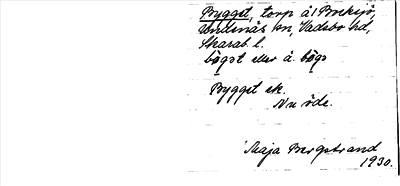 Bygget, torp å 1 Brocksjö,
Undenäs sn, Vadsbo hd,
Skarab. l.
bögət eller å. bögə
Bygget ek.
Nu öde.
Maja Bergstrand
1930.